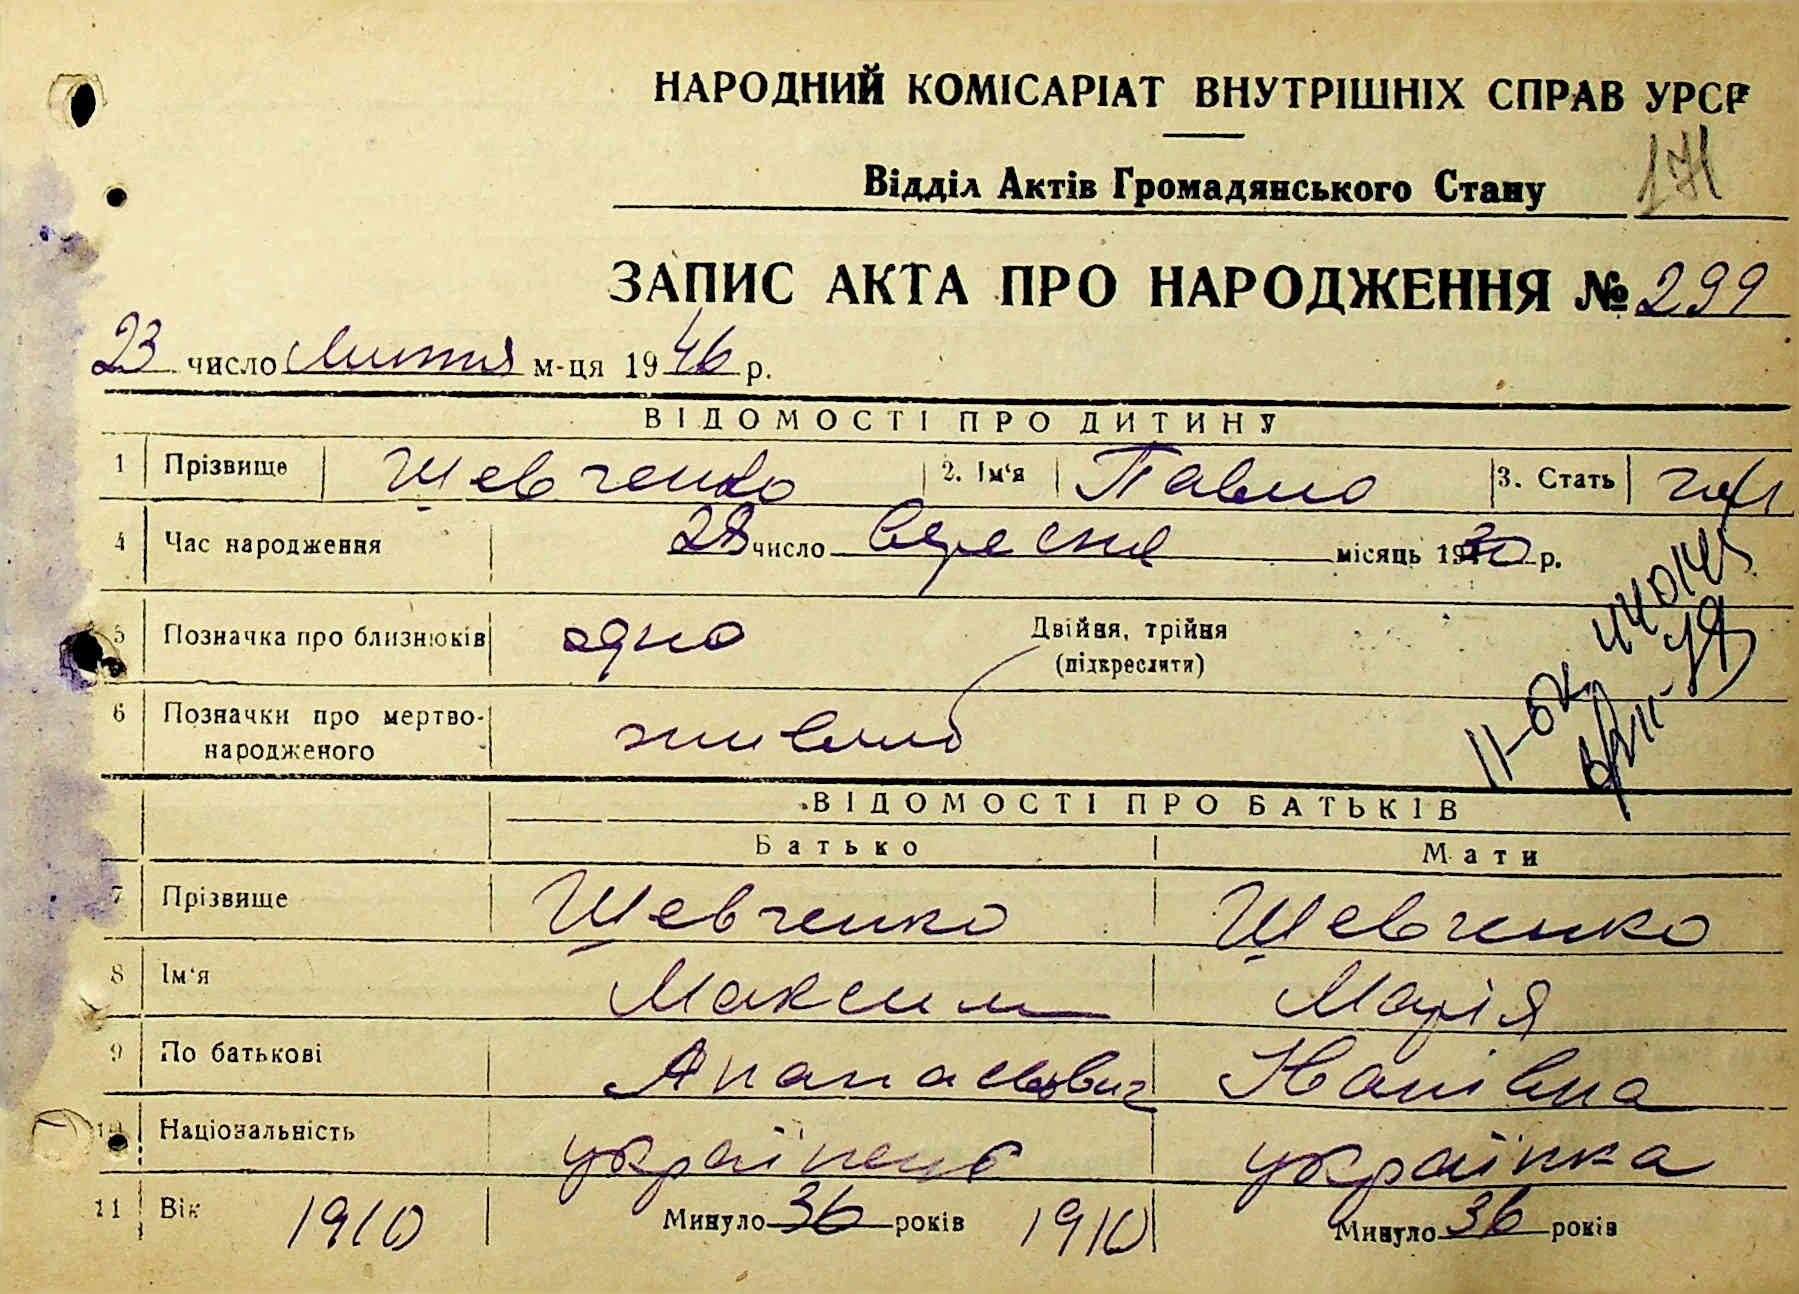 НАРОДНИЙ КОМІСАРІАТ ВНУТРІШНІХ СПРАВ УРСР
171
Відділ Актів Громадянського Стану
ЗАПИС АКТА ПРО НАРОДЖЕННЯ № 299
23 число м-ця 1946 р.
ВІДОМОСТІ ПРО ДИТИНУ
1 Прізвище Шевченко 2. Ім'я Павло 3. Стать чол
4 Час народження 28 число Вересня місяць 1930 р.
5 Позначка про близнюків одно Двійня, трійня
(підкреслити)
6 Позначки про мертво-
народженого живий
ВІДОМОСТІ ПРО БАТЬКІВ
Батько Мати
7 Прізвище Шевченко Шевченко
8 Ім'я Максим Марія
9 По батькові Апанасович Іванівна
10 Національність українець українка
11 Вік 1910 Минуло 36 років 1910 Минуло 36 років